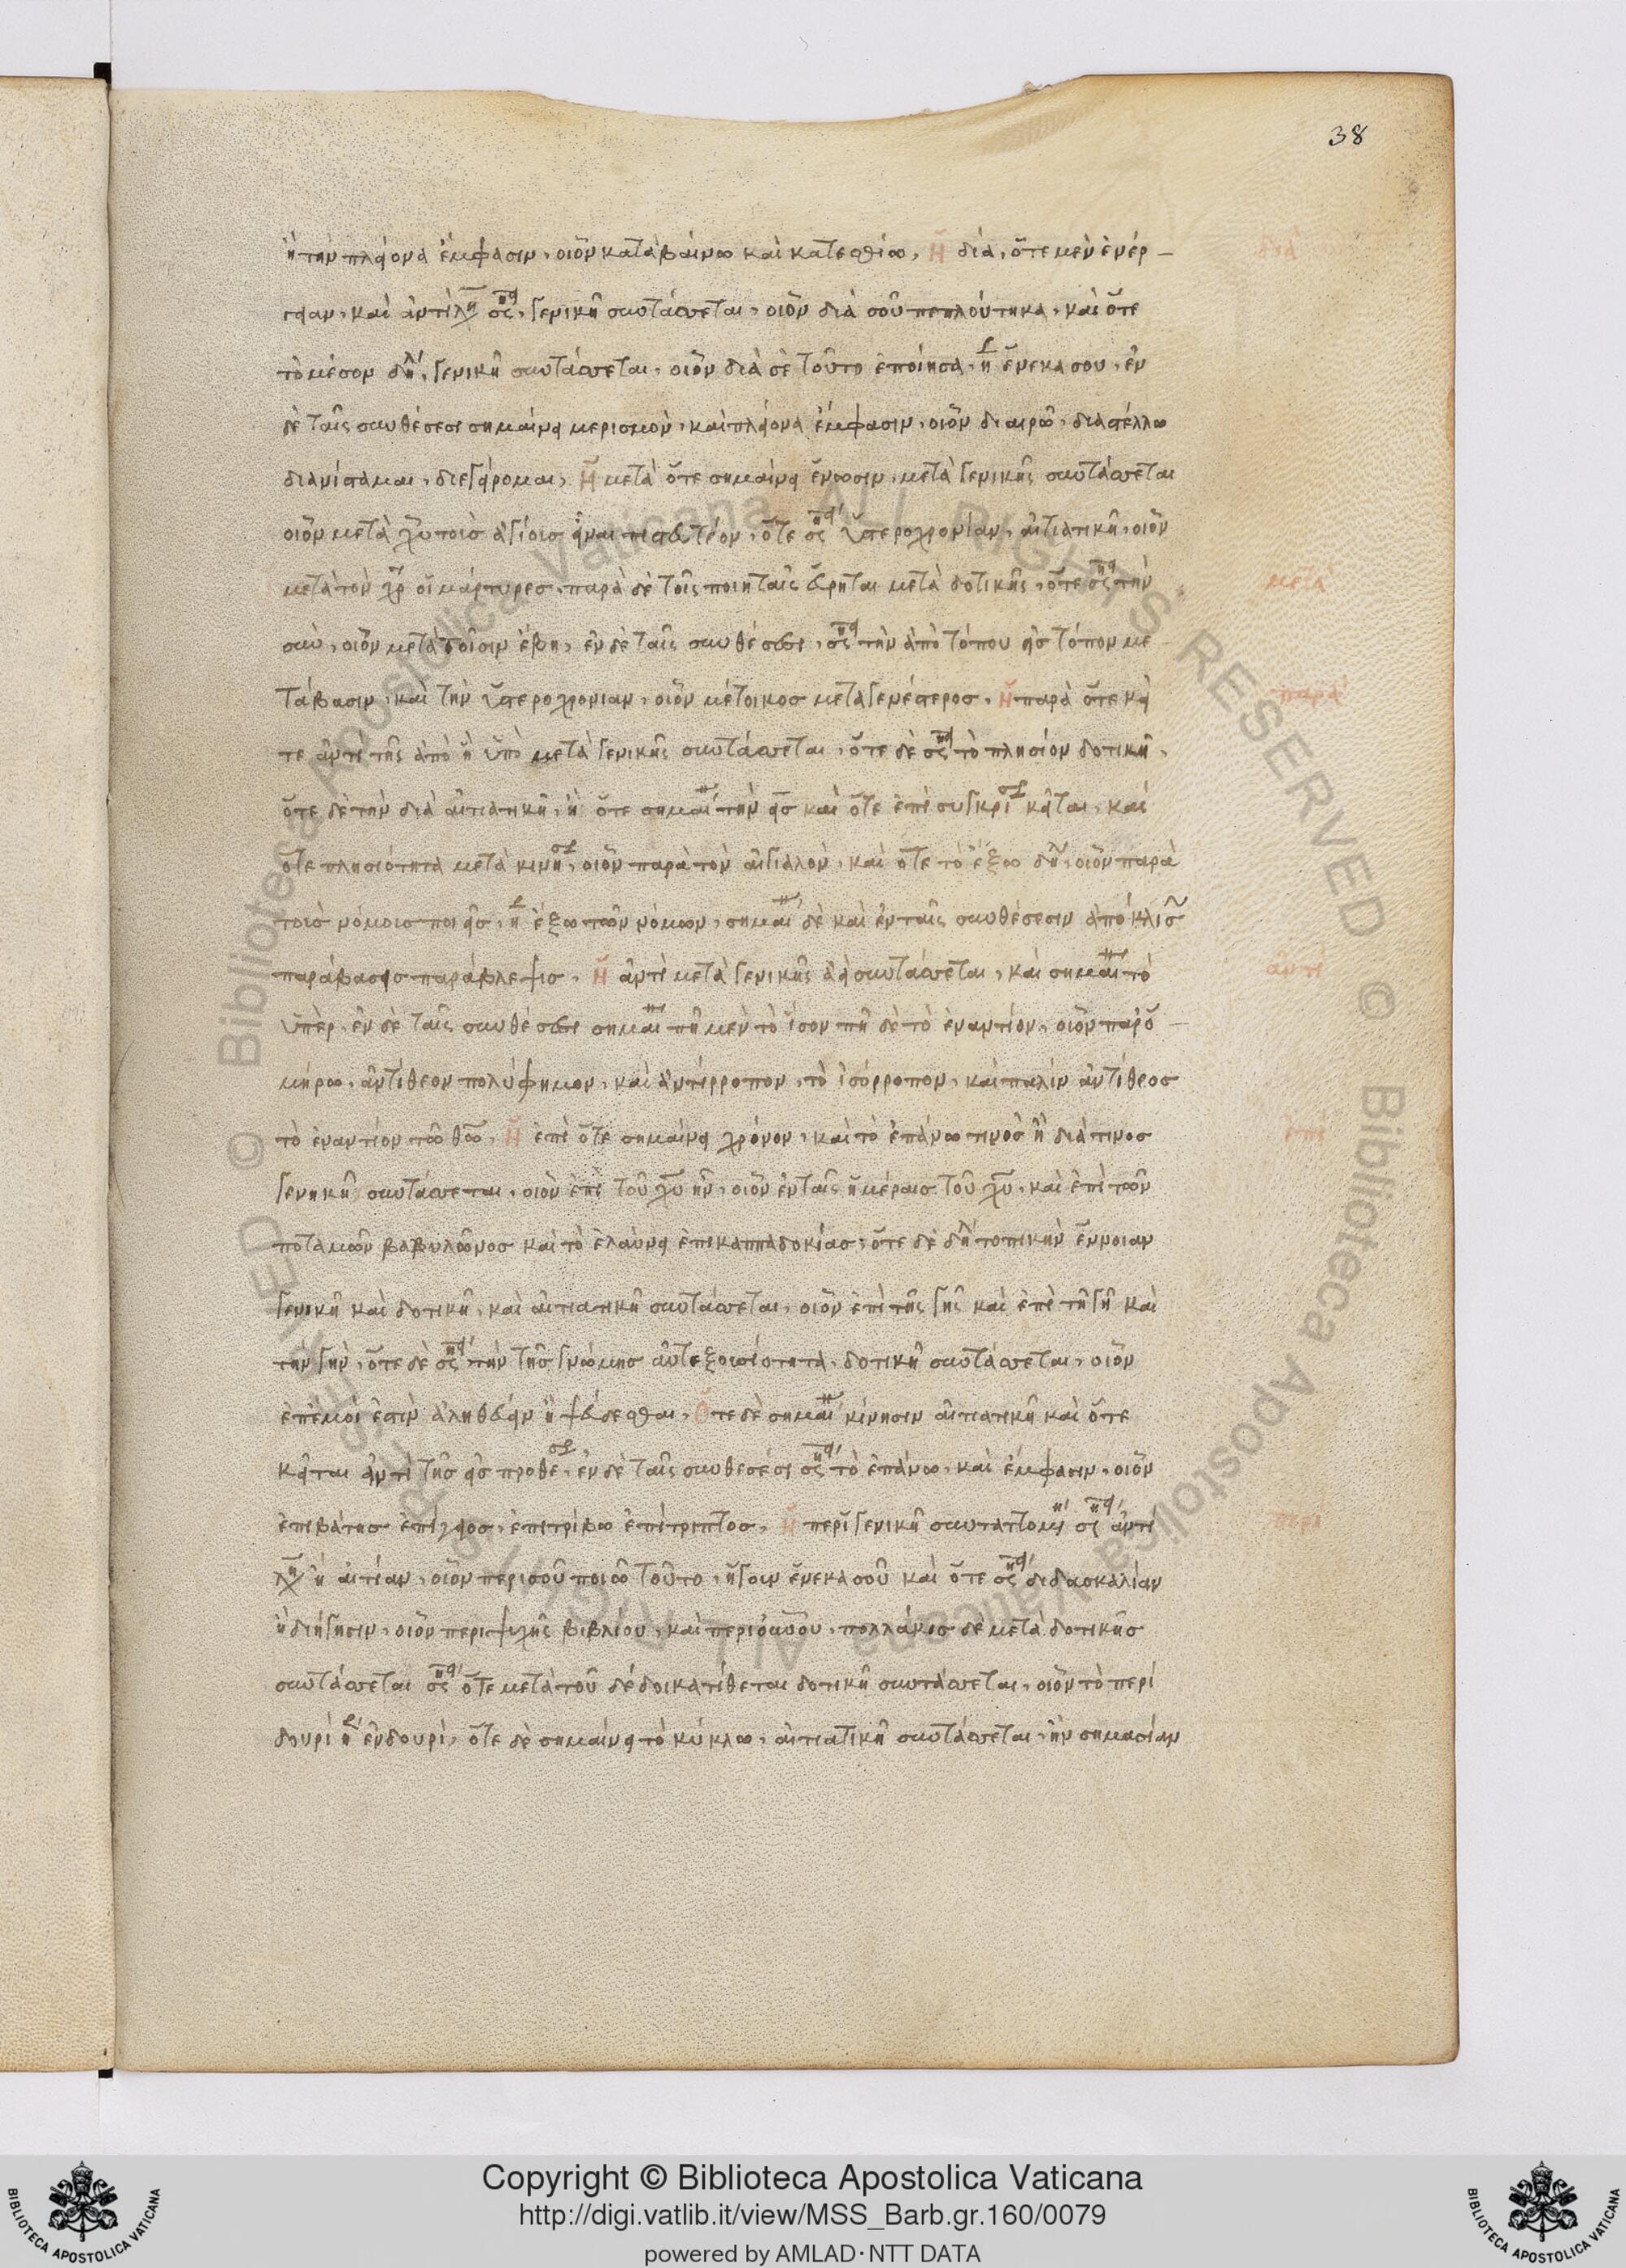 38
ἢ τὴν πλείονα ἔμφασιν, οἷον καταβαίνω καὶ κατεσθίω, Ἡ διά, ὅτε μὲν ἐνέρ-
γειαν, καὶ γενικῇ συντάσσεται, οἷον διὰ σοῦ πεπλούτηκα, καὶ ὅτε
τὸ μέσον δηλ, γενικῇ συντάσσεται, οἷον διὰ σὲ τοῦτο ἐποίησα, ἕνεκα σου, ἐν
δὲ ταῖς συνθέσεσι σημαίνει μερισμὸν, καὶ πλείονα ἔμφασιν, οἷον διαιρῶ, διαστέλλω
διανίσταμαι, διεγείρομαι, Ἡ μετὰ ὅτε σημαίνει ἕνωσιν, μετὰ γενικῆς συντάσσεται
οἷον μετὰ χυ τοῖς ἁγίοις εἶναι πιστευτέον, ὅτε ὑστεροχρονίαν, αἰτιατικῇ, οἷον
μετὰ τὸν χν οἱ μάρτυρες, παρὰ δὲ τοῖς ποιηταῖς εὕρηται μετὰ δοτικῆς, ὅτε τὴν
σὺν, οἷον μετὰ τοῖσιν ἔβη, ἐν δὲ ταῖς συνθέσεσι, τὴν ἀπὸ τόπου εἰς τόπον με
τάβασιν, καὶ τὴν ὑστεροχρονίαν, οἷον μέτοικος μεταγενέστερος, Ἡ παρὰ ὅτε κεῖ
ται ἀντὶ τῆς ἀπὸ ἢ ὑπὸ μετὰ γενικῆς συντάσσεται, ὅτε δὲ τὸ πλησίον δοτικῇ,
ὅτε δὲ τὴν διὰ αἰτιατικῇ, ἢ ὅτε σημαί τὴν εἰς καὶ ὅτε ἐπὶ συγκρί κεῖται, καὶ
ὅτε πλησιότητα μετὰ κινή, οἷον παρὰ τὸν αἰγιαλὸν, καὶ ὅτε τὸ ἔξω δηλ, οἷον παρὰ
τοὺς νόμους ποιεῖς, ἔξω τῶν νόμων, σημαί δὲ καὶ ἐν ταῖς συνθέσεσιν
παράβασις παράβλεψις. Ἡ ἀντὶ μετὰ γενικῆς ἀεὶ συντάσσεται, καὶ σημαί τὸ
ὑπέρ, ἐν δὲ ταῖς συνθέσεσι σημαί πῆ μὲν τὸ ἴσον πῆ δὲ τὸ ἐναντίον, οἷον παρ' ὁ
μήρω, ἀντίθεον πολύφημον, καὶ ἀντίρροπον, τὸ ἰσόρροπον, καὶ πάλιν ἀντίθεος
τὸ ἐναντίον τῶ θω, Ἡ ἐπὶ ὅτε σημαίνει χρόνον, καὶ τὸ ἐπάνω τινος ἢ διά τινος
γενηκῇ συντάσσεται, οἷον ἐπὶ τοῦ χυ ἦν, οἷον ἐν ταῖς ἡμέραις τοῦ χυ, καὶ ἐπὶ τῶν
ποταμῶν βαβυλῶνος καὶ τὸ ἐλαύνει ἐπὶ καππαδοκίας, ὅτε δὲ δηλ τοπικὴν ἔννοιαν
γενικῇ καὶ δοτικῇ, καὶ αἰτιατικῇ συντάσσεται, οἷον ἐπὶ τῆς γῆς καὶ ἐπὶ τῇ γῇ καὶ
τὴν γῆν, ὅτε δὲ τὴν τῆς γνώμης αὐτεξουσιότητα, δοτικῇ συντάσσεται, οἷον
ἐπ' ἐμοὶ ἐστὶν ἀληθεύειν ἢ ψεύδεσθαι, Ὅτε δὲ σημαί κίνησιν αἰτιατικῇ καὶ ὅτε
κεῖται ἀντὶ τῆς εἰς προθέ, ἐν δὲ ταῖς συνθέσεσι τὸ ἐπάνω, καὶ ἔμφασιν, οἷον
ἐπιβάτης ἐπίγειος, ἐπιτρίβω ἐπίτριπτος, Ἡ περὶ γενικῇ ἀντὶ
ἢ αἰτίαν, οἷον περὶ σοῦ ποιῶ τοῦτο, ἤγουν ἕνεκα σοῦ καὶ ὅτε διδασκαλίαν
ἢ διήγησιν, οἷον περὶ ψιλῆς βιβλίου, καὶ πολλάκις δὲ μετὰ δοτικῆς
συντάσσεται ὅτε μετὰ τοῦ δέδοικα τίθεται δοτικῇ συντάσσεται, οἷον τὸ περὶ
δουρὶ ἐν δουρί, ὅτε δὲ σημαίνει τὸ κύκλω, αἰτιατικῇ συντάσσεται, ἣν σημασίαν
διὰ
μετὰ
παρὰ
ἀντὶ
ἐπὶ
περὶ
Copyright © Biblioteca Apostolica Vaticana
http://digi.vatlib.it/view/MSS_Barb.gr.160/0079
powered by AMLAD·NTT DATA
BIBLIOTECA APOSTOLICA VATICANA
BIBLIOTECA APOSTOLICA VATICANA